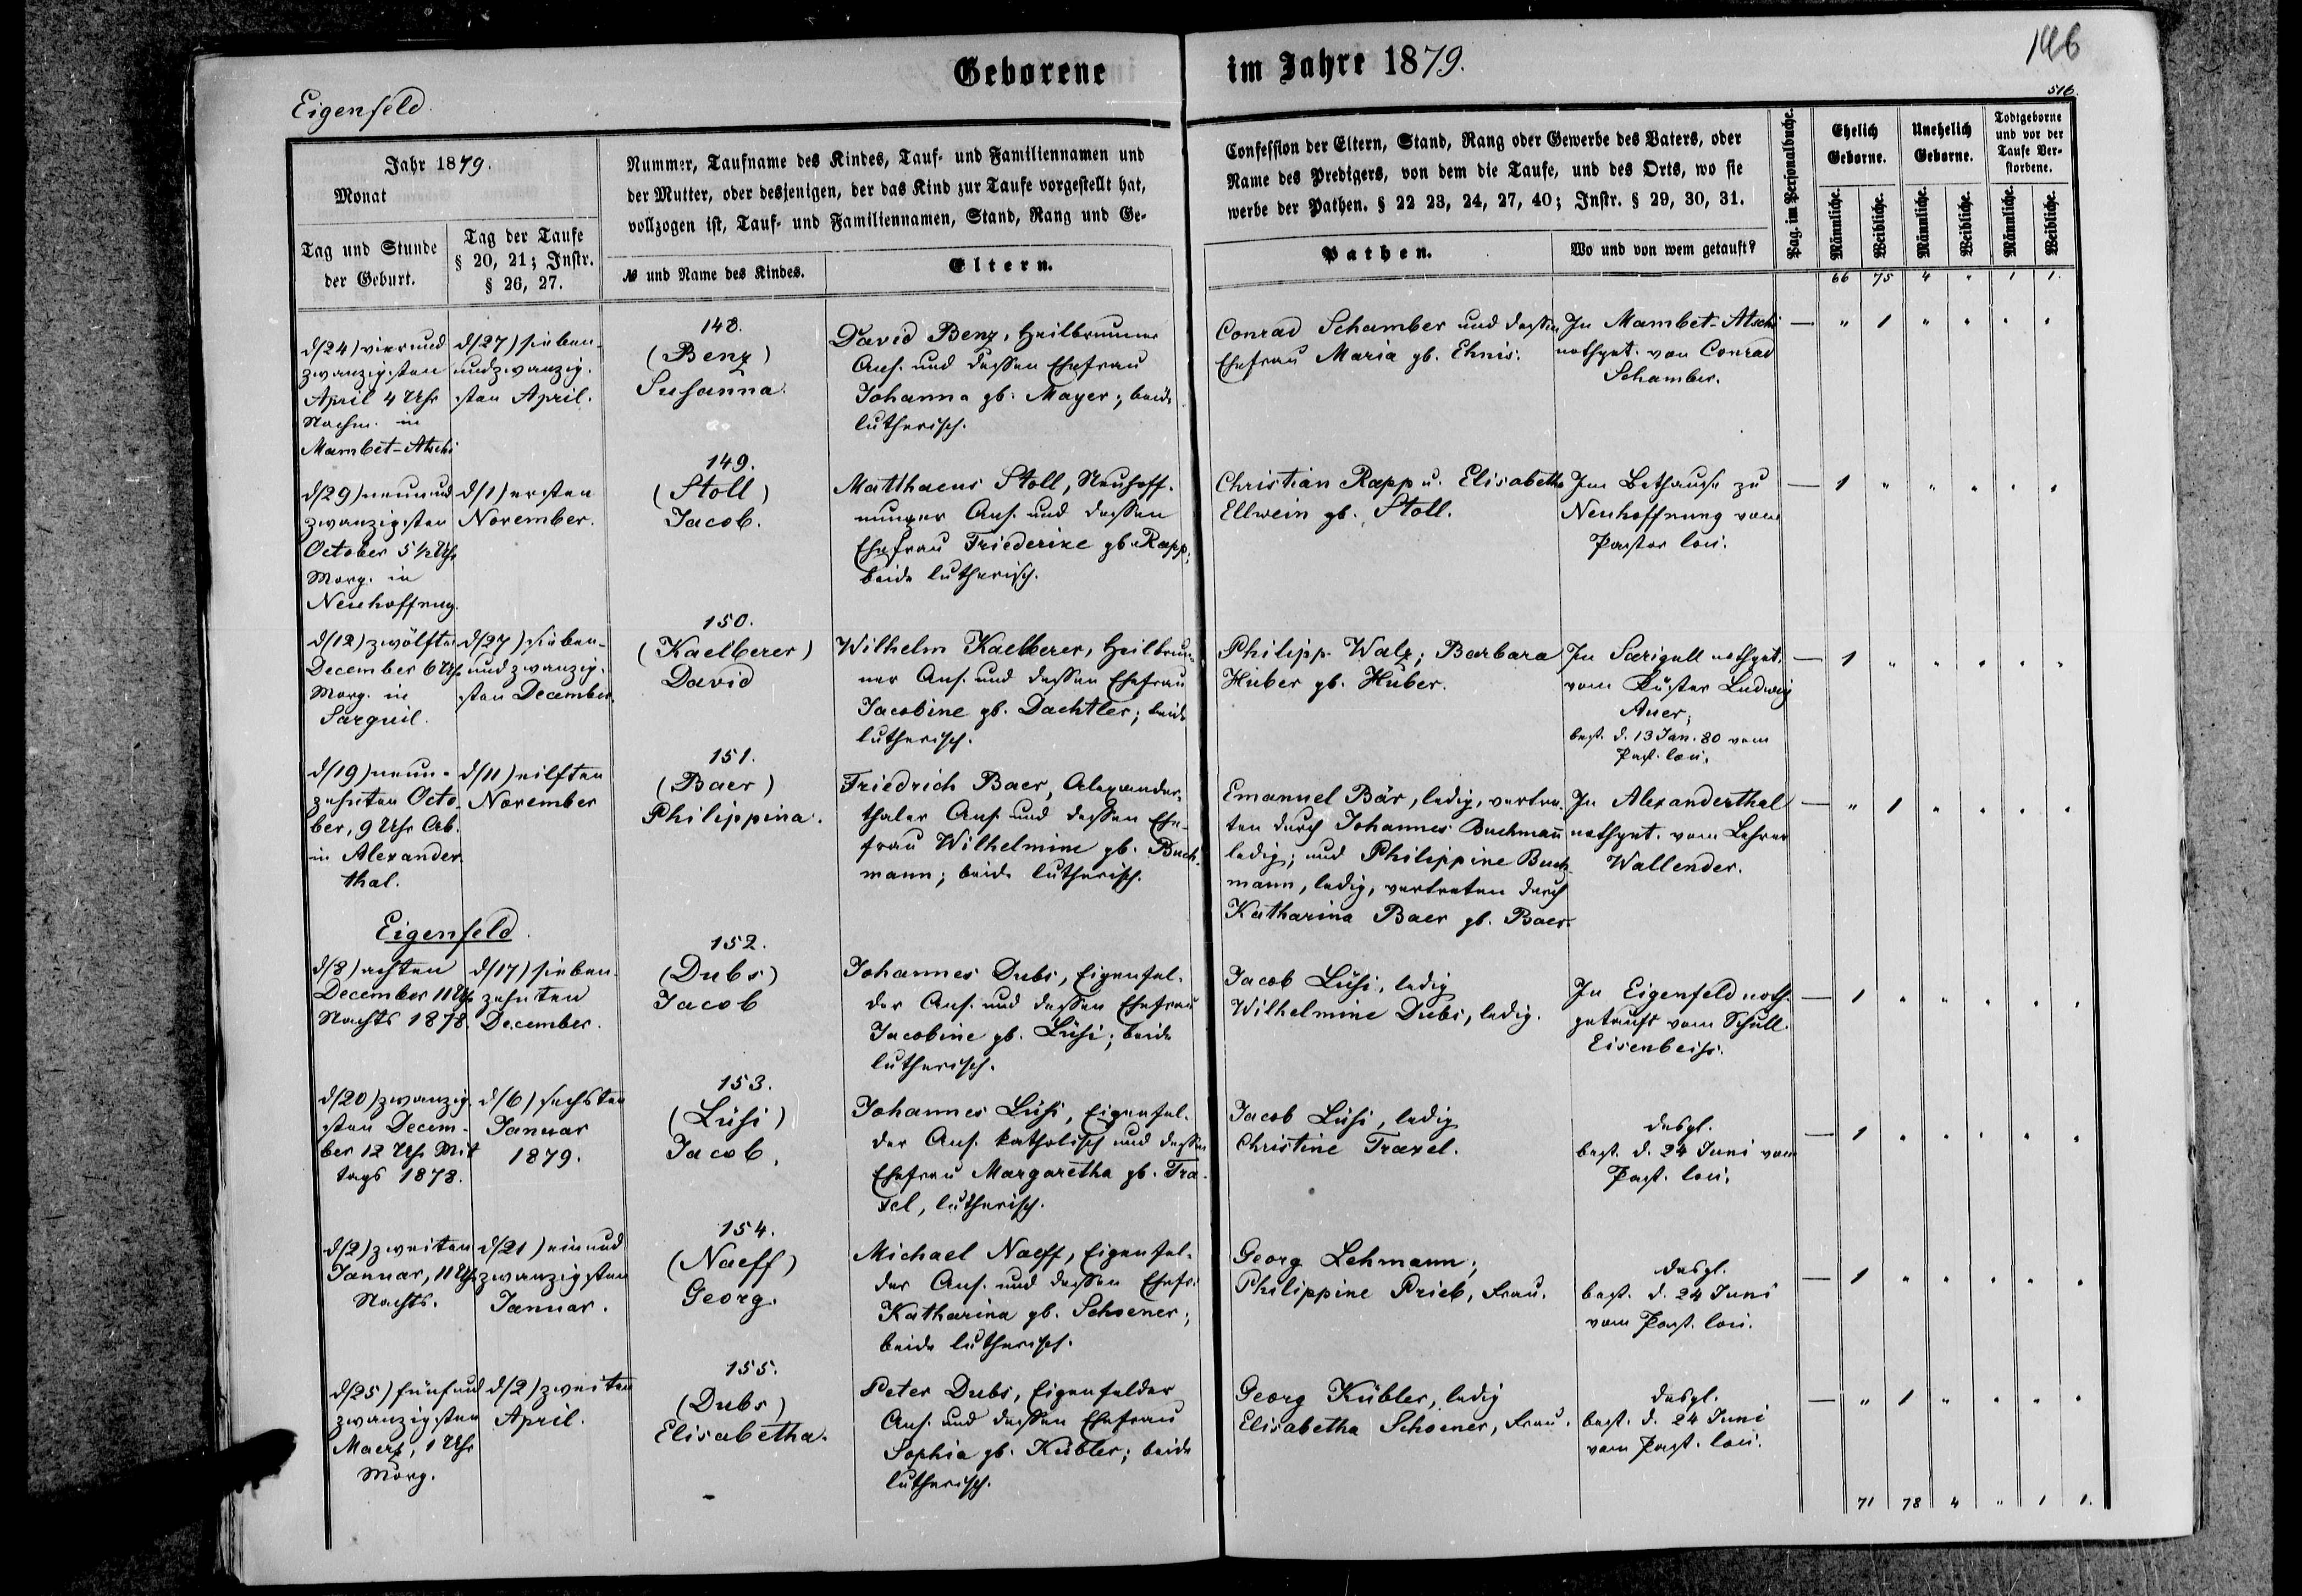 Geborene im Jahre 1879.
146
516.
Eigenfeld.
Jahr 1879.
Monat
Tag und Stunde
der Geburt.
Tag der Taufe
§ 20, 21; Instr.
§ 26, 27.
Nummer, Taufname des Kindes, Tauf- und Familiennamen und
der Mutter, oder desjenigen, der das Kind zur Taufe vorgestellt hat,
vollzogen ist, Tauf- und Familiennamen, Stand, Rang und Ge-
№ und Name des Kindes.
Eltern.
Confession der Eltern, Stand, Rang oder Gewerbe des Vaters, oder
Name des Predigers, von dem die Taufe, und des Orts, wo sie
werbe der Pathen. § 22 23, 24, 27, 40; Instr. § 29, 30, 31.
Pathen.
Wo und von wem getauft?
Pag. im Personalbuche.
Ehelich
Geborne.
Unehelich
Geborne.
Todtgeborne
und vor der
Taufe Ver-
storbene.
Männliche.
Weibliche.
Männliche.
Weibliche.
Männliche.
Weibliche.
66 75 4 " 1 1.
d/24) vierund
zwanzigsten
April 4 Uhr
Nachm. in
Mambet-Atschi
d/27) sieben-
undzwanzig-
sten April.
148.
(Benz)
Susanna.
David Benz, Heilbrunner
Ans. und dessen Ehefrau
Johanna gb. Mayer; beide
lutherisch.
Conrad Schamber und dessen
Ehefrau Maria gb. Ehnis.
In Mambet-Atschi
nothget. von Conrad
Schamber.
— " 1 " " " "
d/29) neunund
zwanzigsten
October 5 ½ Uhr
Morg. in
Neuhoffnug.
d/1) ersten
November.
149.
(Stoll)
Jacob.
Matthaeus Stoll, Neuhoff-
nunger Ans. und dessen
Ehefrau Friederike gb. Rapp;
beide lutherisch.
Christian Rapp u. Elisabetha
Ellwein gb. Stoll.
Im Bethause zu
Neuhoffnung vom
Pastor loci.
— 1 " " " " "
d/12) zwölften
December 6 Uhr
Morg. in
Sarguil.
d/27) sieben-
undzwanzig-
sten December.
150.
(Kaelberer)
David
Wilhelm Kaelberer, Heilbrun-
ner Ans. und dessen Ehefrau
Jacobine gb. Dachtler; beide
lutherisch.
Philipp Walz; Barbara
Huber gb. Huber.
In Sarigull nothget.
vom Küster Ludwig
Auer;
best. d. 13 Jan. 80 vom
Past. loci.
— 1 " " " " "
d/19) neun-
zehnten Octo-
ber, 9 Uhr Ab.
in Alexander
thal.
d/11) eilften
November
151.
(Baer)
Philippina.
Friedrich Baer, Alexander-
thaler Ans. und dessen Ehe-
frau Wilhelmine gb. Buch-
mann; beide lutherisch.
Emanuel Bär, ledig, vertre-
ten durch Johannes Buchmañ
ledig; und Philippine Buch-
mann, ledig, vertreten durch
Katharina Baer gb. Baer.
In Alexanderthal
nothget. vom Lehrer
Wallender.
— " 1 " " " "
Eigenfeld.
d/8) achten
December 11 Uhr
Nachts 1878.
d/17) sieben-
zehnten
December.
152.
(Dubs)
Jacob
Johannes Dubs, Eigenfel-
der Ans. und dessen Ehefrau
Jacobine gb. Lüsi; beide
lutherisch.
Jacob Lüsi, ledig
Wilhelmine Dubs, ledig.
In Eigenfeld noth-
getauft vom Schull.
Eisenbeiss.
— 1 " " " " "
d/20) zwanzig-
sten Decem-
ber 12 Uhr Mit
tags 1878.
d/6) sechsten
Januar
1879.
153.
(Lüsi)
Jacob.
Johannes Lüsi, Eigenfel-
der Ans. katholisch und dessen
Ehefrau Margaretha gb. Tra-
xel, lutherisch.
Jacob Lüsi, ledig
Christine Traxel.
desgl.
best. d. 24 Juni vom
Past. loci.
— 1 " " " " "
d/2) zweiten
Januar, 11 Uhr
Nachts.
d/21) einund
zwanzigsten
Januar.
154.
(Naeff)
Georg.
Michael Naeff, Eigenfel-
der Ans. und dessen Ehefr.
Katharina gb. Schoener;
beide lutherisch.
Georg Lehmann;
Philippine Prieb, Frau.
desgl.
best. d. 24 Juni
vom Past. loci.
— 1 " " " " "
d/25) fünfund
zwanzigsten
Maerz, 1 Uhr
Morg.
d/2) zweiten
April.
155.
(Dubs)
Elisabetha.
Peter Dubs, Eigenfelder
Ans. und dessen Ehefrau
Sophia gb. Kübler; beide
lutherisch.
Georg Kübler, ledig
Elisabetha Schoener, Frau.
desgl.
best. d. 24 Juni
vom Past. loci.
— " 1 " " " "
71 78 4 " 1 1.